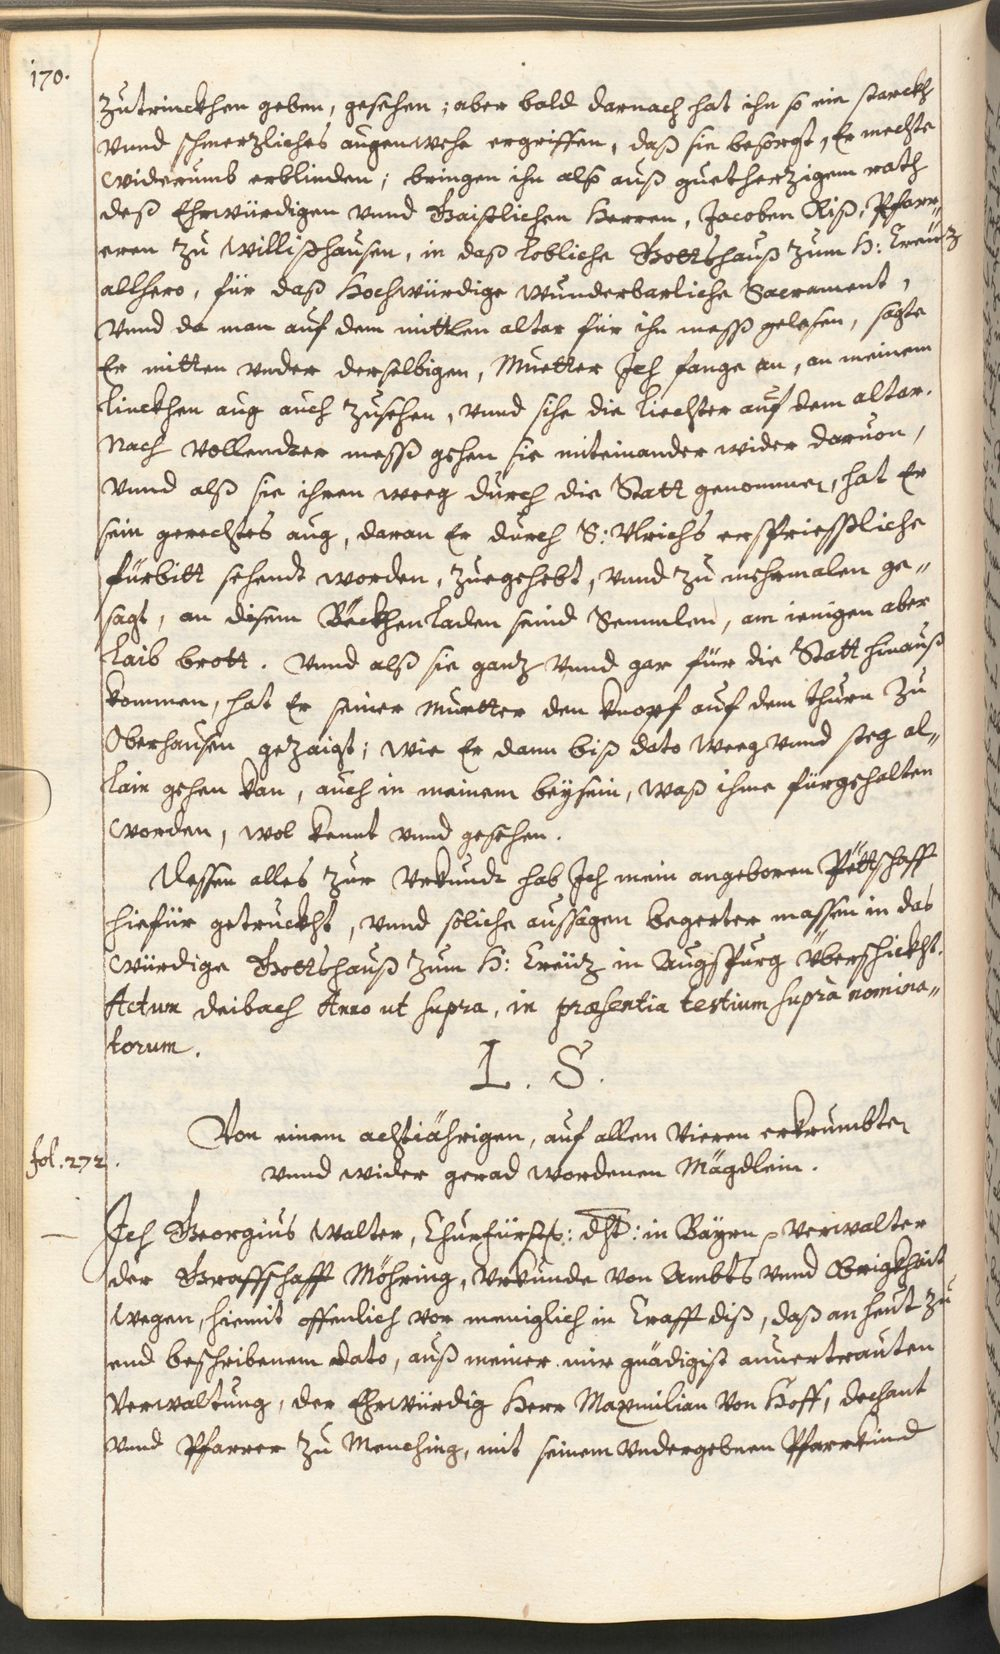 170.
zutrinckhen geben, gesehen; aber bald darnach hat ihn so ein starckh
vnnd schmertzliches augenwehe ergriffen, daß sie besorgt, Er mechte
widerumb erblinden; bringen ihn alß auß guethertzigem rath
deß Ehrwürdigen vnnd Gaistlichen Herren, Jacoben Riß, Pfarr„
eren zu Willißhausen, in daß lobliche Gottshauß zum H: Creütz
allhero, für daß Hochwürdige wunderbarliche Sacrament,
vnnd da man auf dem mittlen altar für ihn mess gelesen, sagte
Er mitten vnder derselbigen, Muetter Ich fange an, an meinem
linckhen aug auch zusehen, vnnd sihe die liechter auf dem altar.
Nach vollendter mess gehen sie miteinander wider daruon,
vnnd alß sie ihren weeg durch die Statt genommen, hat Er
sein gerechtes aug, daran Er durch S: Vlrichs ersprießliche
fürbitt sehendt worden, zuegehebt, vnnd zu mehrmalen ge„
sagt, an disem Böckhenladen seind Semmlen, am ienigen aber
laib brott. Vnnd alß sie gantz vnnd gar für die Statt hinauß
kommen, hat Er seiner Muetter den knopf auf dem thurn zu
Oberhausen gezaigt; wie Er dann biß dato weeg vnnd steg al„
lain gehen kan, auch in meinem beysein, waß ihme fürgehalten
worden, wol kennt vnnd gesehen.
Dessen alles zur Vrkundt hab Ich mein angeboren Pettschafft
hiefür getruckht, vnnd soliche aussagen begerter massen in das
würdige Gottshauß zum H: Creütz in Augspurg überschickht.
Actum deibach Anno ut supra, in præsentia testium suprà nomina„
torum.
L. S.
Von einem achtiährigen, auf allen Vieren erkrumbten
fol. 272.
vnnd wider gerad wordenen Mägdlein.
Ich Georgius Walter, Churfürstl: dht: in Bayrn Verwalter
der Graffschafft Möhring, Vrkunde von Ambts vnnd Obrigkhait
wegen, hiemit offenlich vor meniglich in Crafft diß, daß an heut zu
end beschribenem dato, auß meiner mir gnädigist anuertrauten
Verwaltung, der Ehrwürdig Herr Maximilian von Hoff, dechant
vnnd Pfarrer zu Menching, mit seinem vndergebnen Pfarrkind